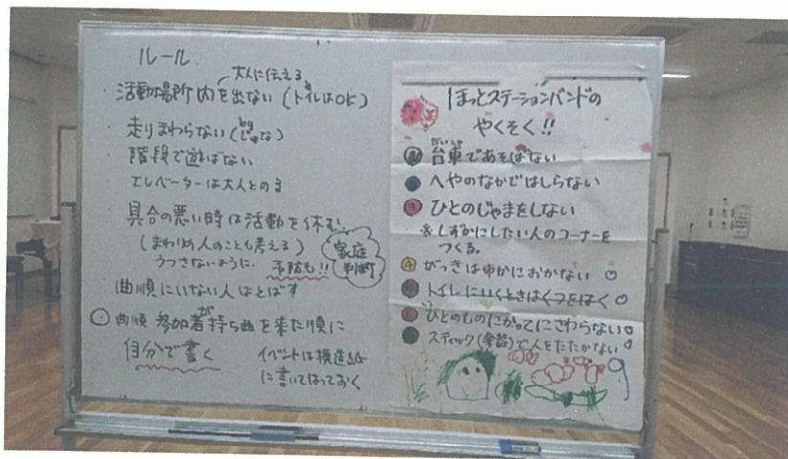 ルール
大人に伝える
・活動場所内を出ない(トイレはOK)
・走りまわらない(
・階段で遊ばない
エレベーターは大人とのる
具合の悪い時は活動を休む
(まわりの人のことも考える)
うつさないように.予防も!!
家庭判断
曲順にいない人はとばす
曲順 参加者が持ち曲を来た順に
自分で書く
イベントは模造紙
に書いてはっておく
ほっとステーションバンドの
やくそく!!
台車であそばない
へやのなかではしらない
ひとのじゃまをしない
※しずかにしたい人のコーナーを
つくる。
がっきはゆかにおかない
トイレにいくときはくつをはく
ひとのものにかってにさわらない
スティック(楽器)で人をたたかない